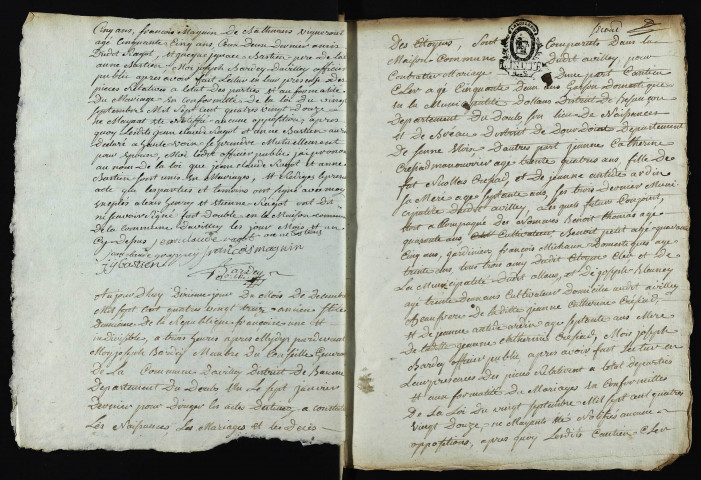 Cinq ans, françois Magnin De Battenans vigneront
agé Cinquante Cinq ans, tous deux Dernier amis
Dudit Ragot, et jacque ignace Bastien père de la
anne Bastien Moi joseph Bardey Davilley officier
public apres avoir fait Lecture en leur présence des
pieces Relatives a letat Des parties et au formalité
Du Mariage La Conformité De la Loi du vingt
septembre Mil sept Cent quatre vingt Douze
ne Mayant été Notiffié aucune opposition, après
quoy Lesdits jean claude Ragot et anne Bastien ont
Déclaré a haute voix se prendre Mutuellement
pour Epoux, Moi Ledit officier public j'ai prononcé
au nom De la loi que jean claude Ragot et anne
Bastien sont unis En Mariages, et Rédigés Le present
acte que Les parties et temoins ont signé avec moi
exceptés alexis et Etienne Ragot ont Dit
ne sçavoir signé fait Double en la Maison commune
De la Commune Davilley Les jour Mois et an
Cy Dessus jean claude ragot anne bastiens
françois magnin
Jg Bastien
Bardey
aujourd'huy Dixieme jour Du Mois de Decembre
Mil sept Cent quatre vingt treize
De la Republique francaise une et
indivisible, a trois heures après Midy pardevant
Moy joseph Bardey Membre Du Conseille General
De La Commune Davilley District de Baume
Departement Du Doubs Elu Le sept janvier
Dernier pour Diriger les actes Destinés a constater
Les Naissances Les Mariages et les Décès
Des Citoyens, Sont Comparuts Dans la
Maison Commune Dudit avilley pour
Contracter Mariage Dune part
Cler agé Cinquante Deux ans Garçon Domestique
en la Municipalité Dollans District de Besançon
Departement Du Doubs son lieu De Naissances
est de District de Departement
Dautres part jeanne Catherine
Crepiad agé trente quatres ans, fille de
fut Nicollas Crepiad, et De jeanne antide ardin
sa Mere agé septante ans, les trois Dernier Muni
cipalité dudit avilley, Les quels futurs Conjoint
sont accompagné Des Nommés Benoit thomas agé
quarente ans Benoit petit agé quarante
Cinq ans, jardiniers françois Michaux Domestiques agé
trente tous trois amis Dudit Citoyen Cler et De
La Municipalité Dudit ollans, et de joseph
agé trente deux ans Cultivateur Domicilié audit avilley
Beaufrere De laditte jeanne Catherine Crepiad,
et De jeanne antide ardin agé septante ans Mere
de laditte jeanne Catherine Crepiad, Moi joseph
Bardey officier public après avoir fait Lecture en
Leurs présences Des pieces Relatives a letat Des parties
et aux formalité Du Mariages La Conformités
De La Loi Du vingt septembre Mil sept cent quatres
vingt Douze, ne Mayants été Notifiés aucune
oppositions, après quoy Lesdits Cler